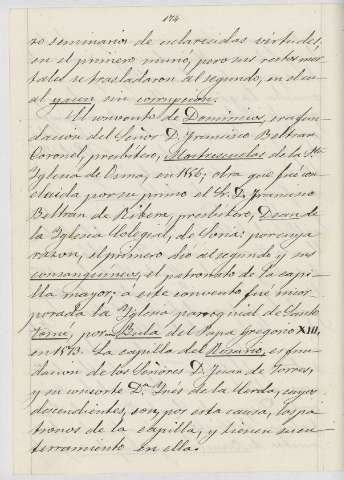 174
ro seminario de esclarecidas virtudes,
en el primero murió, pero sus restos mor-
tales se trasladaron al segundo, en el cu-
al yacen sin corrupcion.
El convento de Dominicos, era fun-
dacion del Señor D. Francisco Beltran
Coronel, presbítero, Maestrescuelas de la Sta.
Iglesia de Osma, en 1556; obra que fué con-
cluida por su primo el Sr. D. Francisco
Beltran de Ribera, presbítero, Dean de
la Iglesia Colegial, de Soria: por cuya
razon, el primero dió al segundo y sus
consanguineos, el patronato de la capi-
lla mayor; á este convento, fué incor-
porada la Iglesia parroquial de Santo
Tomé, por Bula del Papa Gregorio XIII,
en 1573. La capilla del Rosario, es fun-
dacion de los Señores D. Juan de Torres,
y su consorte Dª Inés de la Cerda, cuyos
descendientes, son, por esta causa, los pa-
tronos de la capilla, y tienen su en-
terramiento en ella.